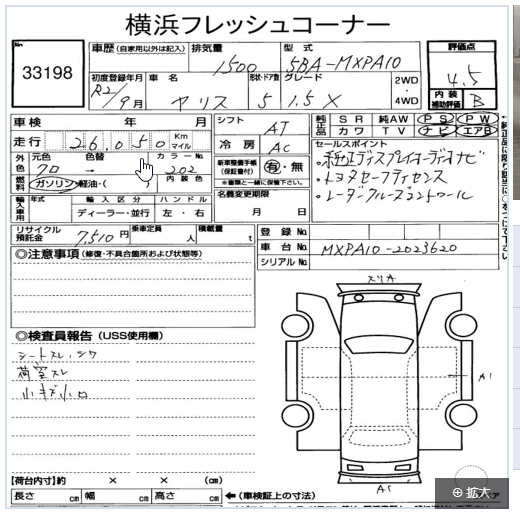 横浜フレッシュコーナー
33198
車歴 (自家用以外は記入) 排気量 型式
1500 5BA-MXPA10
評価点
4.5
内装補助評価 B
初度登録年月 車名 形状・ドア数 グレード
R2/9月 ヤリス 5 1.5X
2WD・4WD
車検 年 月
シフト AT
純正品 SR 純AW PS PW
カワ TV ナビ エアB
走行 26,050 Km マイル
冷房 AC
セールスポイント
・純正ディスプレイオーディオナビ
・トヨタセーフティセンス
・レーダークルーズコントロール
外色 元色 色替 カラーNo.
クロ → 202
新車整備手帳(保証書付) 有・無
※書類と一緒に保管下さい。
燃料 ガソリン・軽油・( ) 内装色
名義変更期限
月 日
輸入車用 年式 輸入区分 ハンドル
ディーラー・並行 左・右
リサイクル預託金 7,510円 乗車定員 人 積載量 t
登録No.
車台No. MXPA10-2023620
シリアルNo.
◎注意事項 (修復・不具合箇所および状態等)
◎検査員報告 (USS使用欄)
シートスレ、シワ
荷室スレ
小キズ小凹
スリキ
A1
A1
【荷台内寸】約 × × (cm)
長さ cm 幅 cm 高さ cm
←(車検証上の寸法)
拡大